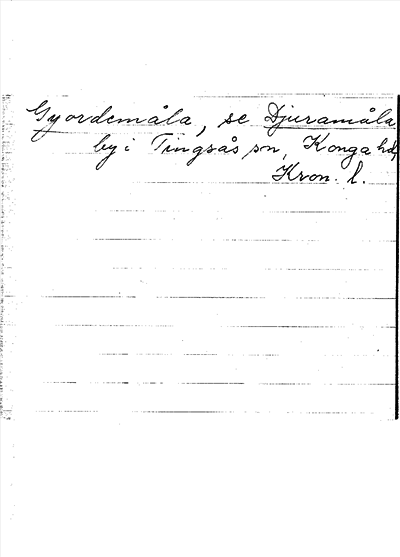 Gyordemåla, se Djuramåla
by i Tingsås sn, Konga hd,
Kron. l.